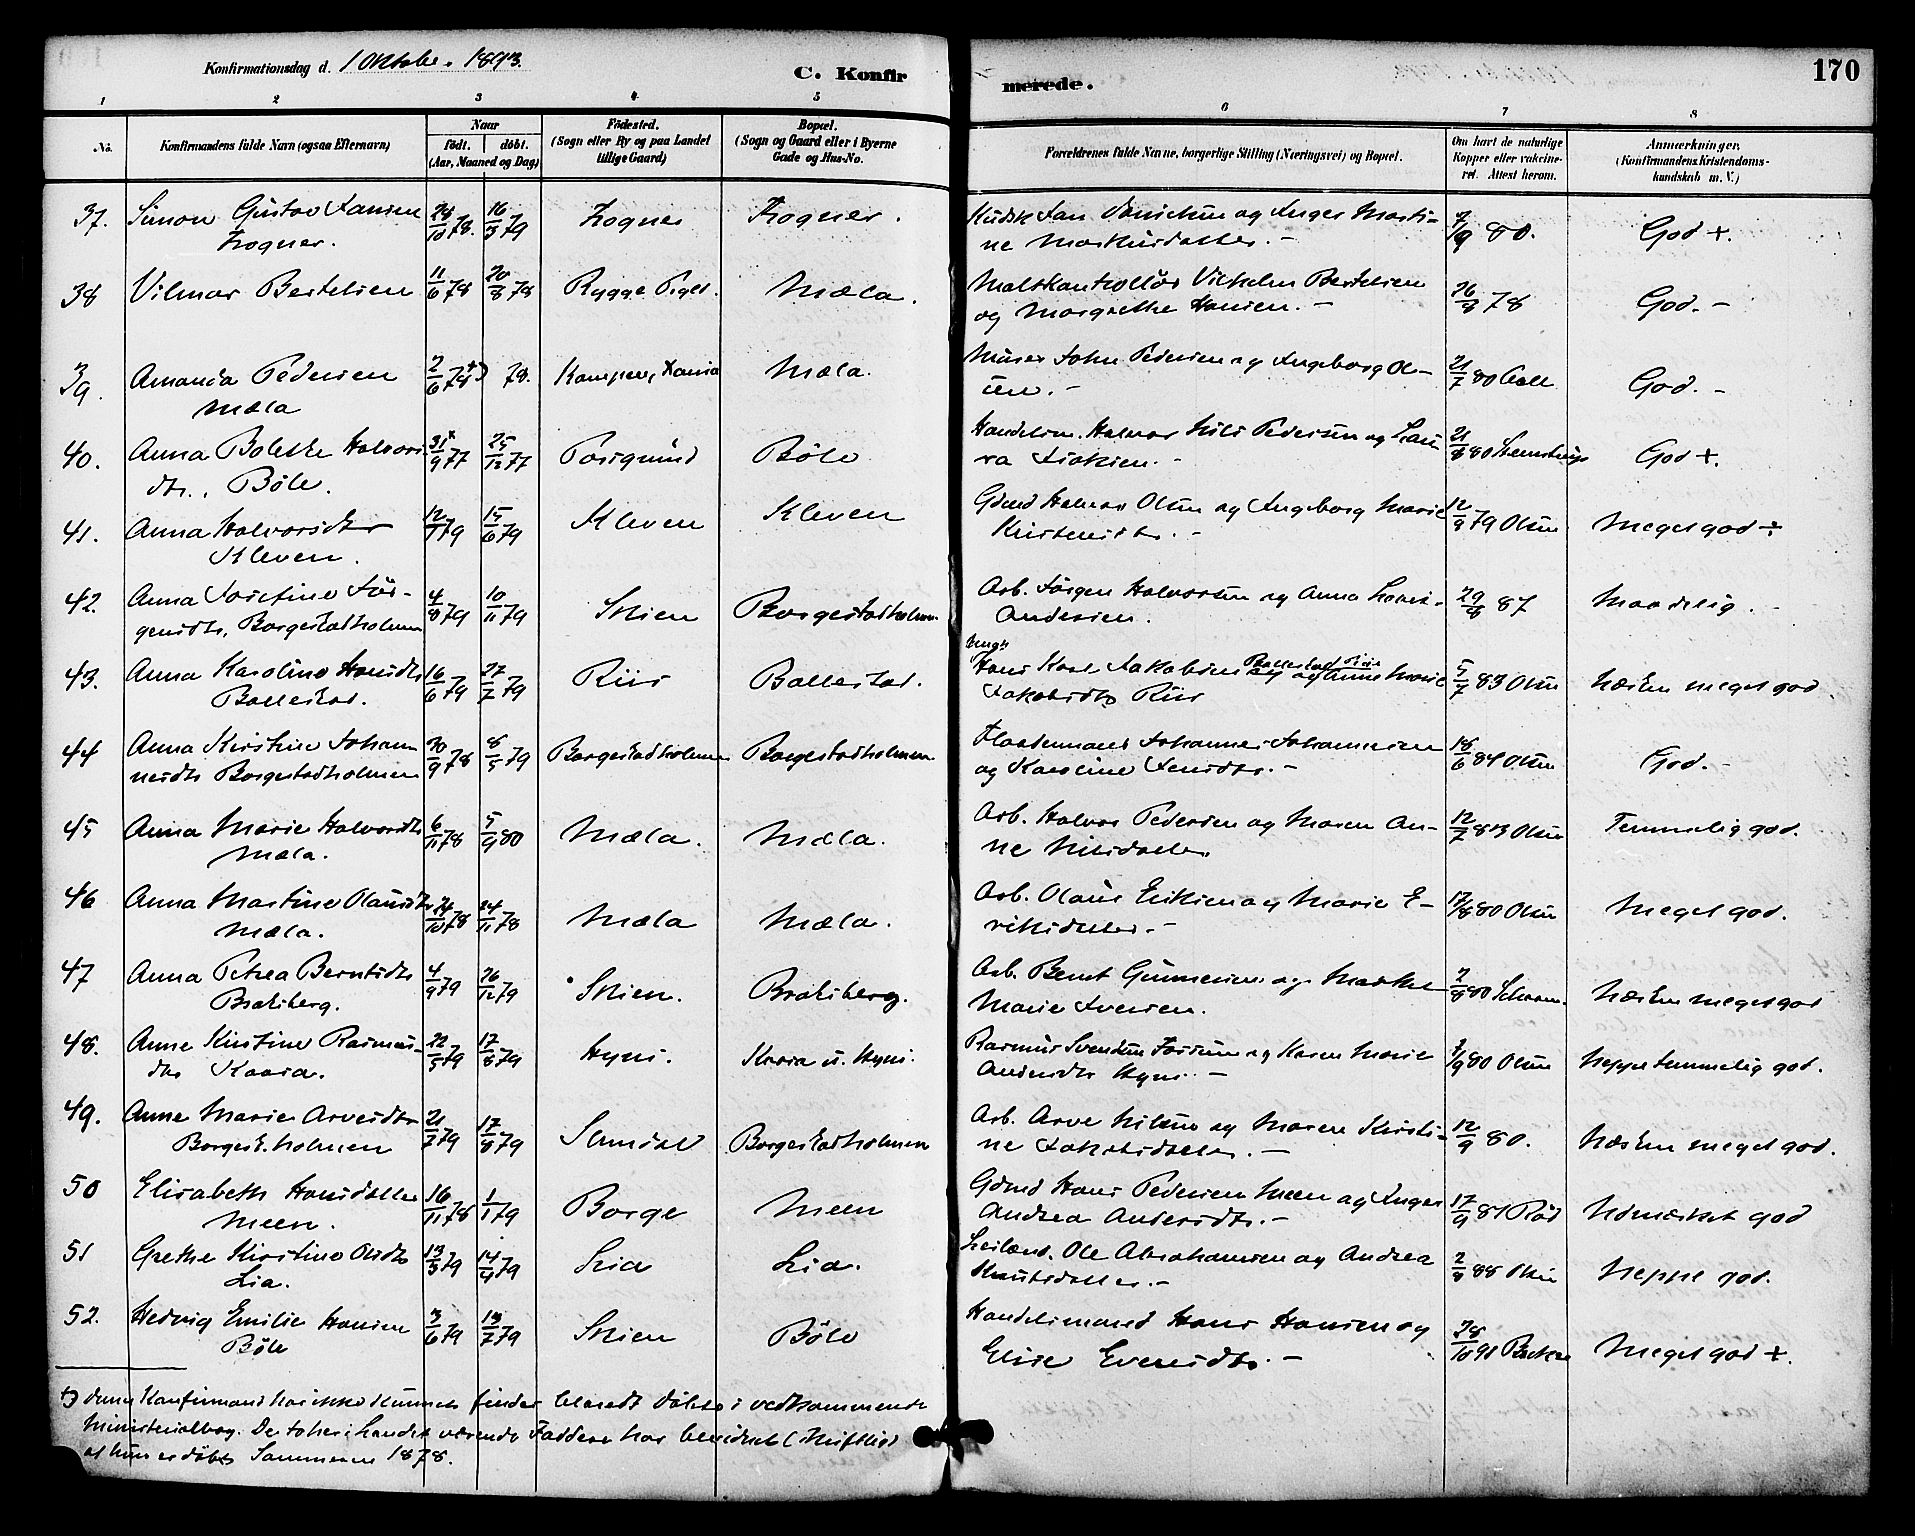 Konfirmationsdag d. 1 Oktober 1893.
C. Konfirmerede.
170
1 2 3 4 5 6 7 8
No.
Konfirmandens fulde Navn (ogsaa Efternavn)
Naar
födt. döbt.
(Aar, Maaned og Dag)
Födested.
(Sogn eller By og paa Landet
tillige Gaard)
Bopæl.
(Sogn og Gaard eller i Byerne
Gade og Hus-No.
Forældrenes fulde Navne, borgerlige Stilling (Næringsvei) og Bopæl.
Om havt de naturlige
Kopper eller vaccine-
ret. Attest herom.
Anmærkninger.
(Konfirmandens Kristendoms-
kundskab m. V.)
37. Simon Gustav Jansen 28/10 78. 16/3 79 Fogner Fogner. Kudsk Jan og Inger Marti- 7/9 80. God +.
Fogner. ne Markusdatter. -
38 Vilmar Bertelsen 11/6 78 20/8 78 Rygge Pgld. Mæla. Maltkontrollör Vilhelm Bertelsen 26/8 78 God. -
og Margrethe Hansen. -
39. Amanda Pedersen 2/6 78 *) 78. Kampen, Xania Mæla. Murer John Pedersen og Ingeborg Ol- 21/7 80 God. -
Mæla sen. -
40. Anna Bolethe Halvors 31/9 77 25/12 77 Porsgrund Böle Handelsm. Halvor Nils Pedersen og Lau- 21/8 80 God +.
dtr., Böle. ra Isaksen. -
41. Anna Halvorsdtr 12/ 79 15/6 79 Kleven Kleven Gbmd Halvor Olsen og Ingeborg Marie 12/9 79 Olsen Meget god ÷
Kleven. Kristensdtr. -
42. Anna Josefine Jör- 4/8 79 10/11 79 Skien Borgestadholmen. Arb. Jörgen Halvorsen og Anna Lovise 29/8 87 Maadelig. -
gensdtr, Borgestadholmen Andersen.
43. Anna Karoline Hansdtr 16/6 79 27/7 79 Riis Ballestad. Ungk Hans Karl Jakobsen Ballestad og Anne Marie 5/7 83 Olsen Næsten meget god
Ballestad. Jakobsdtr Riis
44 Anna Kirstine Johan 30/9 78 8/5 79 Borgestadholmen Borgestadholmen. Flaademand Johannes Johannesen 18/6 84 Olsen God. -
nesdtr Borgestadholmen og Karoline Jensdtr. -
45 Anna Marie Halvorsdtr 6/11 78 5/9 80 Mæla. Mæla. Arb. Halvor Pedersen og Maren An- 12/7 83 Olsen Temmelig god.
Mæla. ne Nilsdatter
46 Anna Martine Olausdtr 24/10 78 24/11 78 Mæla Mæla. Arb. Olaus Eriksen og Marie E- 17/8 80 Olsen Meget god.
Mæla. riksdatter. -
47 Anna Petrea Berntsdtr 4/9 79 26/12 79 Skien. Bratsberg. Arb. Bernt Gunnersen og Marthe 2/8 80 Næsten meget god
Bratsberg. Marie Iversen.
48. Anne Kirstine Rasmus- 22/5 79 17/8 79 Hyni. Kaasa u. Hyni. Rasmus Svendsen Fossum og Karen Marie 7/9 80 Olsen Neppe temmelig god.
dtr Kaasa. Andersdtr Hyni. -
49. Anne Marie Arvesdtr 21/7 79 17/8 79 Borgestadholmen Arb. Arve Nilsen og Maren Kirsti- 12/9 80. Næsten meget god.
Borgest.holmen ne Jakobsdatter. -
50 Elisabeth Hansdatter 16/11 78 1/1 79 Borge Meen Gbmd Hans Pedersen Meen og Inger 17/9 81 Röd Udmærket god
Meen. Andrea Andersdtr. -
51 Grethe Kirstine Olsdtr 13/3 79 14/4 79 Lia Lia. Leilænd. Ole Abrahamsen og Andrea 2/8 88 Neppe god.
Lia. Knutsdatter. -
52. Hedvig Emilie Hansen 3/6 79 13/7 79 Skien Böle Handelsmand Hans Hansen og 28/10 91 Meget god +.
Böle Elise Evensdtr. -
*) denne Konfirmand har ikke kunnet findes blandt döbte i vedkommende
Ministerialbog. De to her i Landet værende Faddere har bevidnet (skriftlig)
at hun er döbt Sommeren 1878.